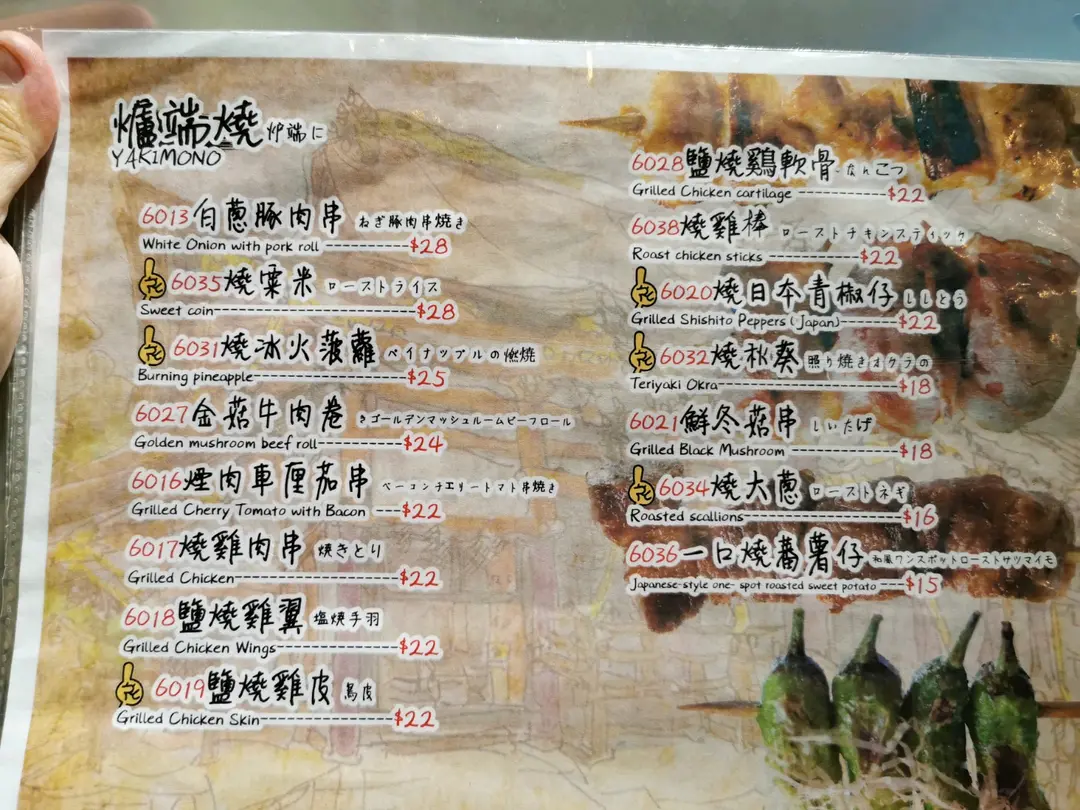 爐端燒 炉端に
YAKIMONO
6013白蔥豚肉串 ねぎ豚肉串焼き
White Onion with pork roll $28
6035燒粟米 ローストライス
Sweet coin $28
6031燒冰火菠蘿 ペイナップルの燃焼
Burning pineapple $25
6027金菇牛肉卷 きゴールデンマッシュルームビーフロール
Golden mushroom beef roll $24
6016煙肉車厘茄串 ベーコンチエリートマト串焼き
Grilled Cherry Tomato with Bacon $22
6017燒雞肉串 焼きとり
Grilled Chicken $22
6018鹽燒雞翼 塩焼手羽
Grilled Chicken Wings $22
6019鹽燒雞皮 鳥皮
Grilled Chicken Skin $22
6028鹽燒鷄軟骨 なんこつ
Grilled Chicken cartilage $22
6038燒雞棒 ローストチキンスティック
Roast chicken sticks $22
6020燒日本青椒仔 ししとう
Grilled Shishito Peppers (Japan) $22
6032燒秋葵 照り焼きオクラの
Teriyaki Okra $18
6021鮮冬菇串 しいたけ
Grilled Black Mushroom $18
6034燒大蔥 ローストネギ
Roasted scallions $16
6036一口燒蕃薯仔 和風ワンスポットローストサツマイモ
Japanese-style one- spot roasted sweet potato $15